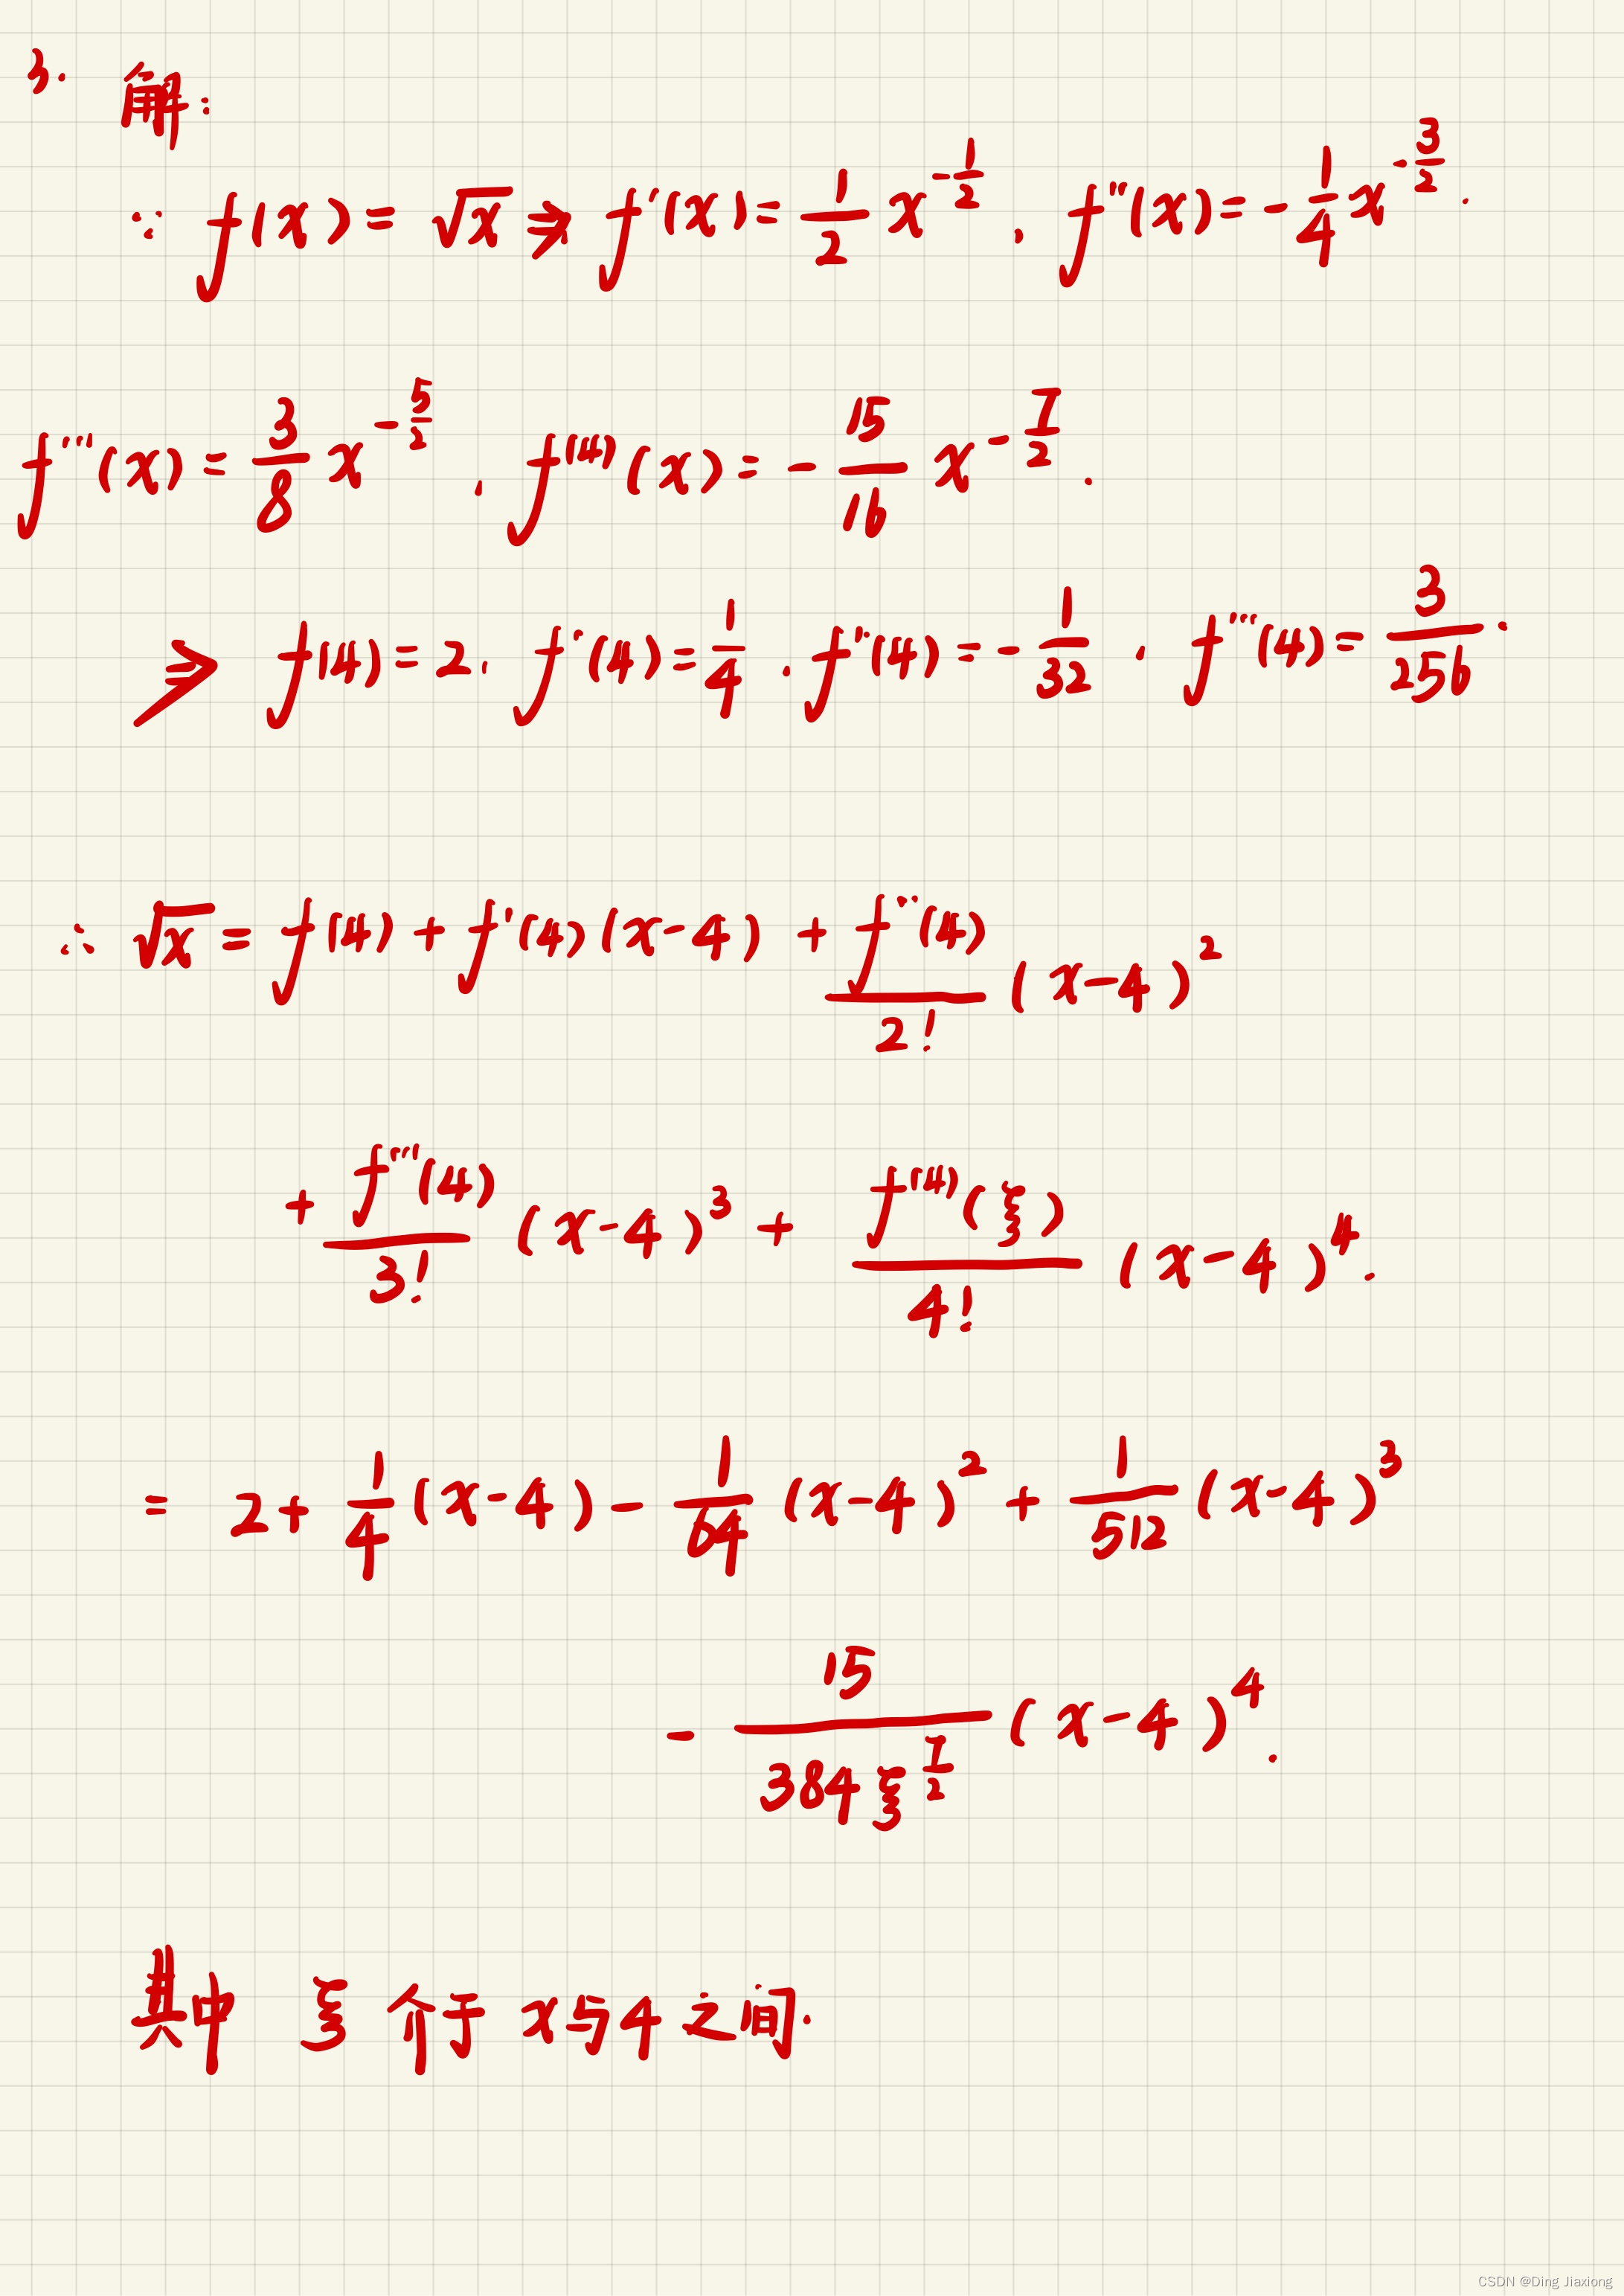 3. 解:
∵ f(x)=√x ⇒ f'(x)=1/2 x^(-1/2). f''(x)=-1/4 x^(-3/2).
f'''(x)=3/8 x^(-5/2). f^(4)(x)=-15/16 x^(-7/2).
⇒ f(4)=2. f'(4)=1/4. f''(4)=-1/32. f'''(4)=3/256.
∴ √x=f(4)+f'(4)(x-4)+f''(4)/2!(x-4)^2
+f'''(4)/3!(x-4)^3+f^(4)(ξ)/4!(x-4)^4.
=2+1/4(x-4)-1/64(x-4)^2+1/512(x-4)^3
-15/(384ξ^(7/2))(x-4)^4.
其中 ξ 介于 x与4之间.
CSDN @Ding Jiaxiong